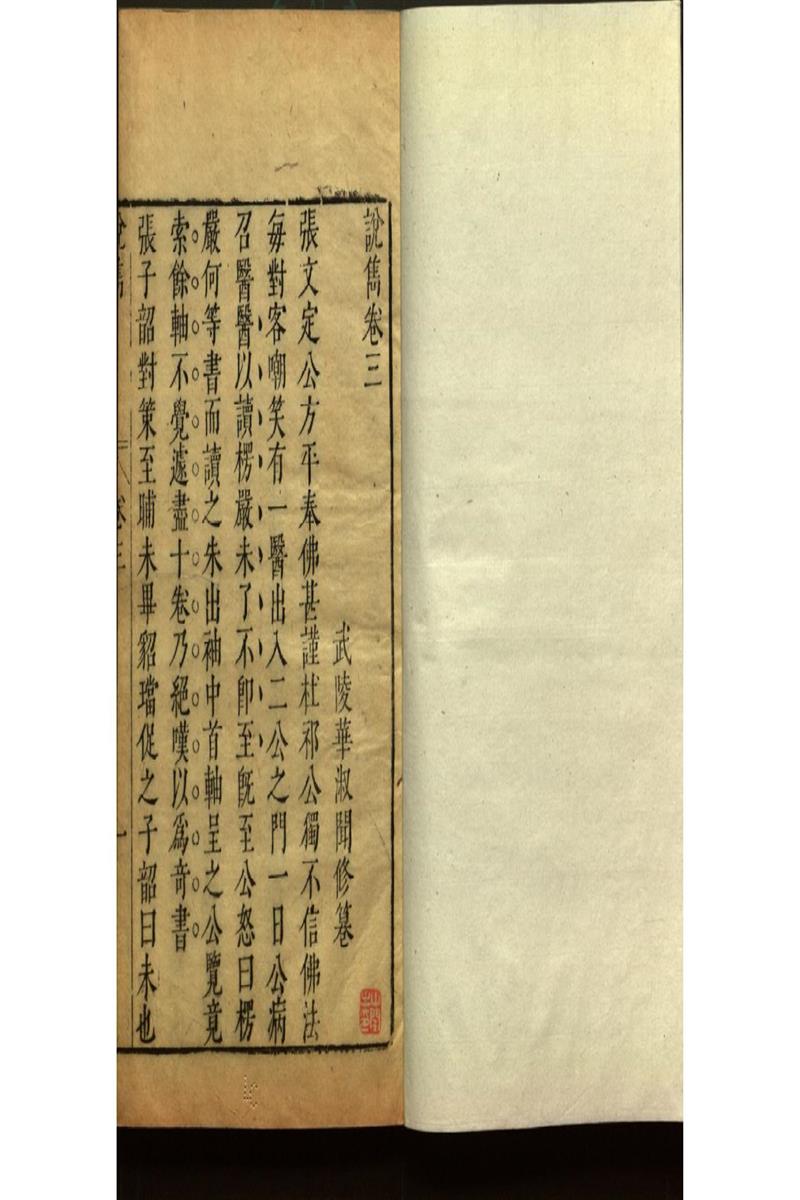 說雋卷三
武陵華淑聞修纂
張文定公方平奉佛甚謹杜祁公獨不信佛法
每對客嘲笑有一醫出入二公之門一日公病
召醫醫以讀楞嚴未了不卽至旣至公怒曰楞
嚴何等書而讀之朱出袖中首軸呈之公覽竟
索餘軸不覺遽盡十卷乃絕嘆以爲奇書
張子韶對策至晡未畢貂璫促之子韶曰未也
卷三
一